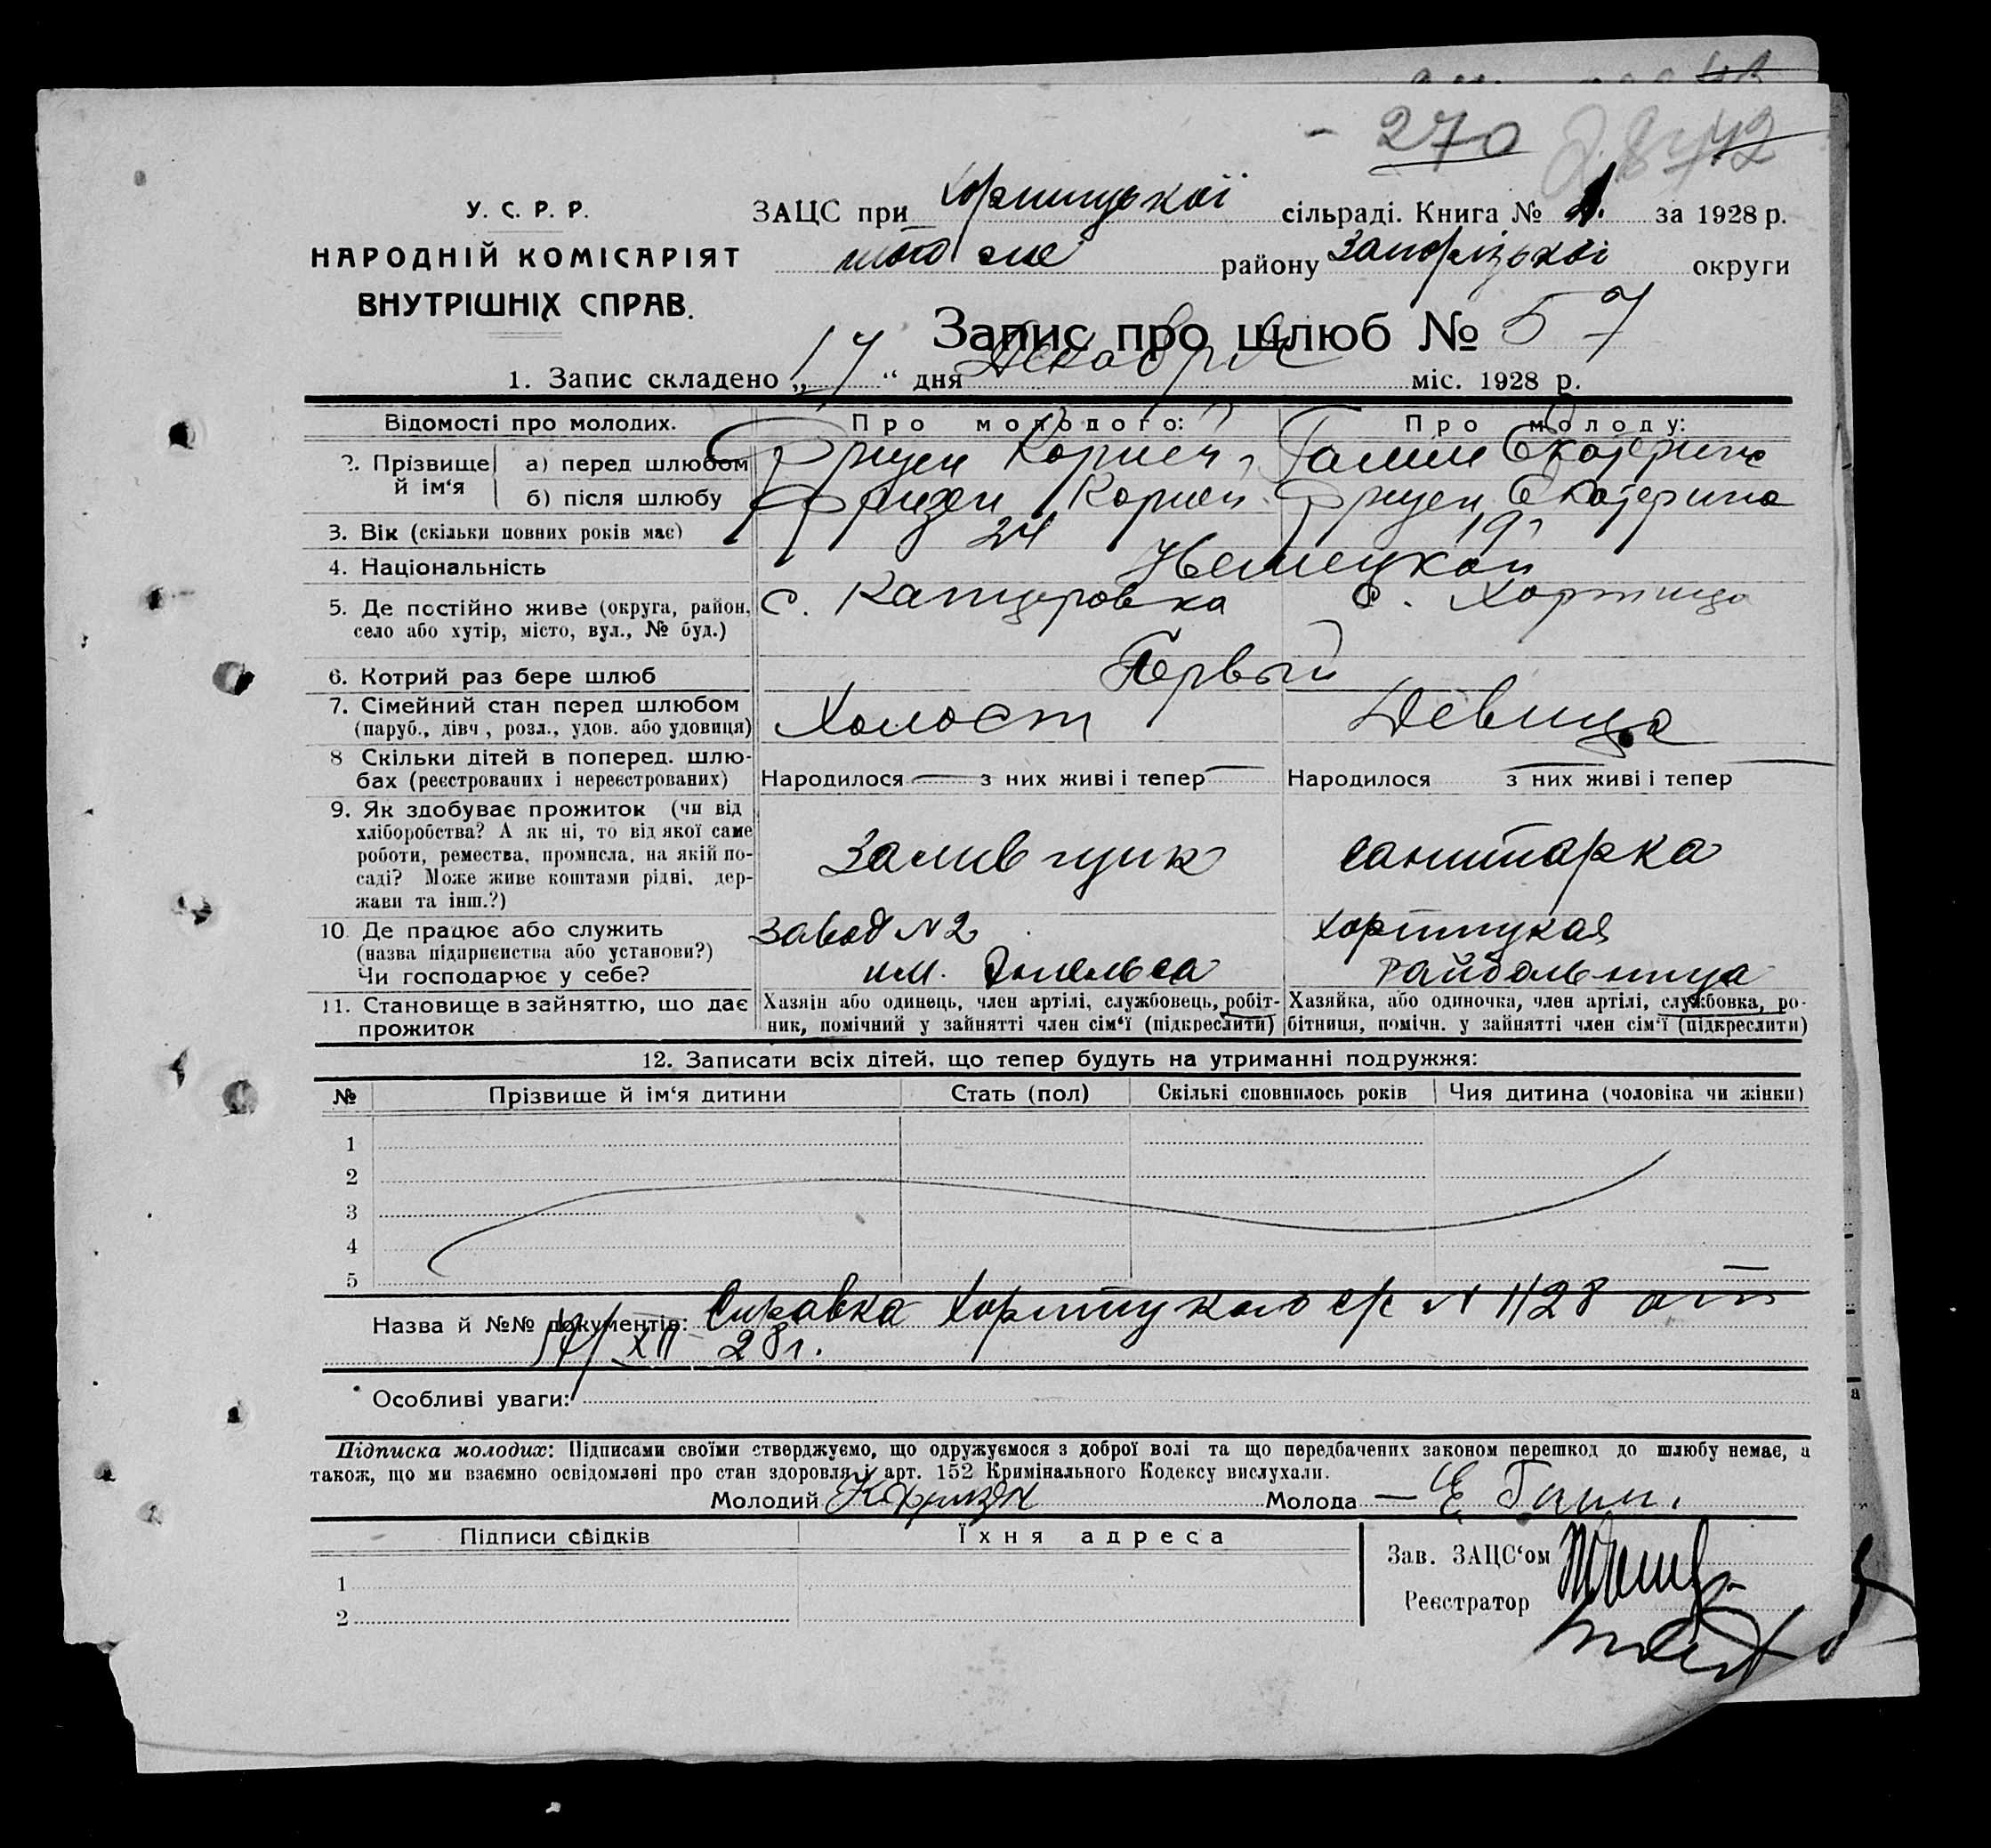 - 270
У. С. Р. Р.
НАРОДНІЙ КОМІСАРІЯТ
ВНУТРІШНІХ СПРАВ.
ЗАЦС при Хортицької сільраді. Книга № 1. за 1928 р.
того же району Запорізької округи
Запис про шлюб № 57
1. Запис складено „17“ дня Декабря міс. 1928 р.
Відомості про молодих. Про молодого: Про молоду:
2. Прізвище й ім‘я а) перед шлюбом Фризен Корней Гамм Екатерина
б) після шлюбу Фризен Корней Фризен Екатерина
3. Вік (скільки повних років має) 24 19
4. Національність Немецкой
5. Де постійно живе (округа, район, с. Канцеровка с. Хортица
село або хутір, місто, вул., № буд.)
6. Котрий раз бере шлюб Первый
7. Сімейний стан перед шлюбом Холост Девица
(паруб., дівч, розл., удов. або удовиця)
8 Скільки дітей в поперед. шлю-
бах (реєстрованих і нереєстрованих) Народилося з них живі і тепер Народилося з них живі і тепер
9. Як здобуває прожиток (чи від
хліборобства? А як ні, то від якої саме
роботи, ремества, промисла, на якій по- Заливщик санитарка
саді? Може живе коштами рідні, дер-
жави та інш.?)
10. Де працює або служить Завод N2 Хортицкая
(назва підприємства або установи?) им. Энгельса Райбольница
Чи господарює у себе?
11. Становище в зайняттю, що дає Хазяін або одинець, член артілі, службовець, робіт- Хазяйка, або одиночка, член артілі, службовка, ро-
прожиток ник, помічний у зайнятті член сім‘ї (підкреслити) бітниця, помічн. у зайнятті член сім‘ї (підкреслити)
12. Записати всіх дітей, що тепер будуть на утриманні подружжя:
№ Прізвише й ім‘я дитини Стать (пол) Скількі сповнилось років Чия дитина (чоловіка чи жінки)
1
2
3
4
5
Назва й №№ документів: Справка Хортицкого с/с N 1128 от
17/XII 28г.
Особливі уваги:
Підписка молодих: Підписами своїми стверджуємо, що одружуємося з доброї волі та що передбачених законом перешкод до шлюбу немає, а
також, що ми взаємно освідомлені про стан здоровля і арт. 152 Кримінального Кодексу вислухали.
Молодий К Фризен Молода — Е Гамм.
Підписи свідків Їхня адреса
Зав. ЗАЦС‘ом
1
Реєстратор
2